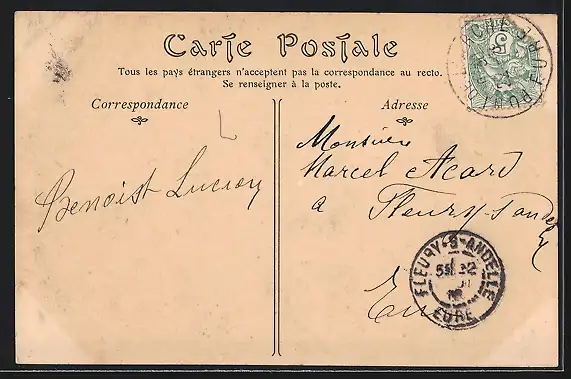 Carte Postale
Tous les pays étrangers n'acceptent pas la correspondance au recto.
Se renseigner à la poste.
Correspondance
Adresse
Benoist Lucien
Monsieur
Marcel Acard
a Fleury-s-Andelle
Eure
FLEURY-S-ANDELLE
EURE
PONT DE L'ARCHE
EURE
5